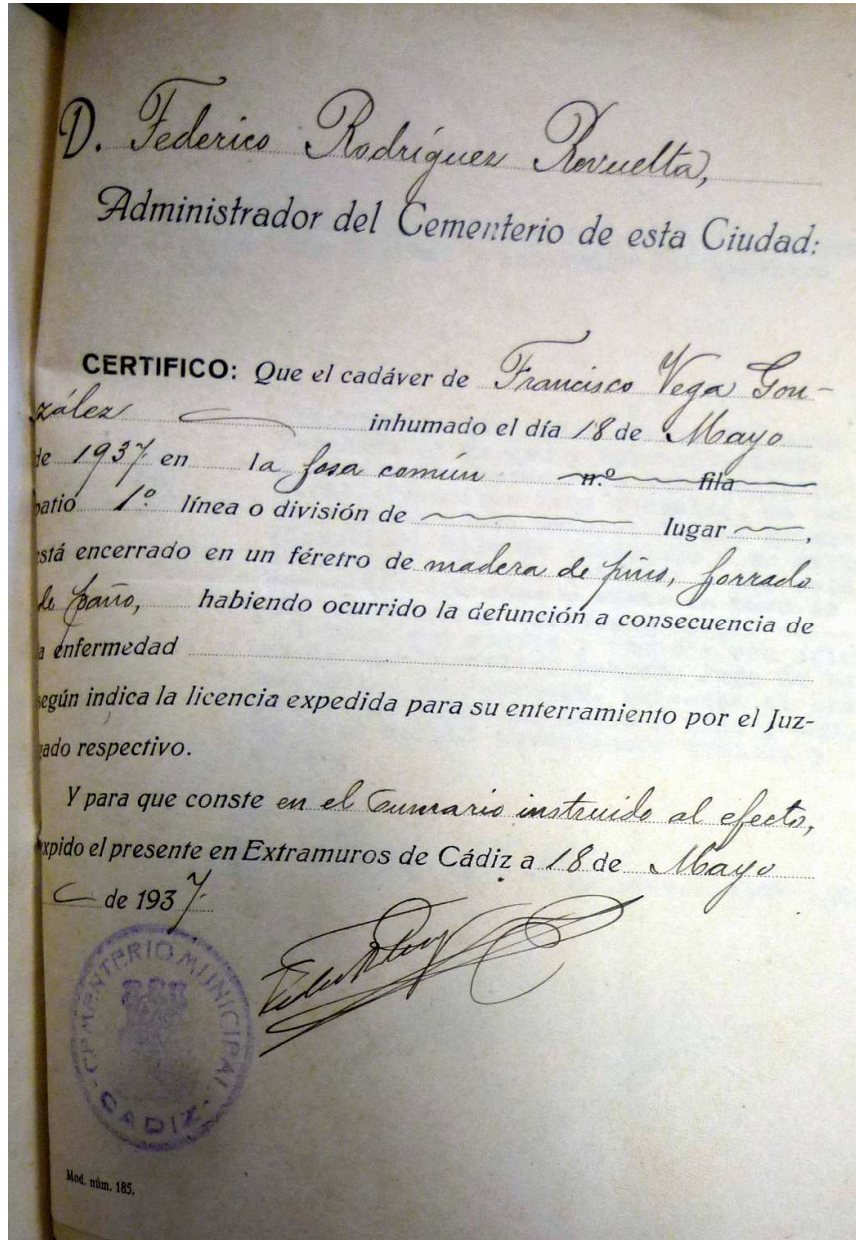 D. Federico Rodríguez Revuelta,
Administrador del Cementerio de esta Ciudad:
CERTIFICO: Que el cadáver de Francisco Vega Gon-
zález inhumado el día 18 de Mayo
de 1937 en la fosa común n.º fila
patio 1º línea o división de lugar ,
está encerrado en un féretro de madera de pino, forrado
de paño, habiendo ocurrido la defunción a consecuencia de
a enfermedad
según indica la licencia expedida para su enterramiento por el Juz-
gado respectivo.
Y para que conste en el Sumario instruido al efecto,
xpido el presente en Extramuros de Cádiz a 18 de Mayo
de 1937
CEMENTERIO MUNICIPAL
CADIZ
Mod. núm. 185.